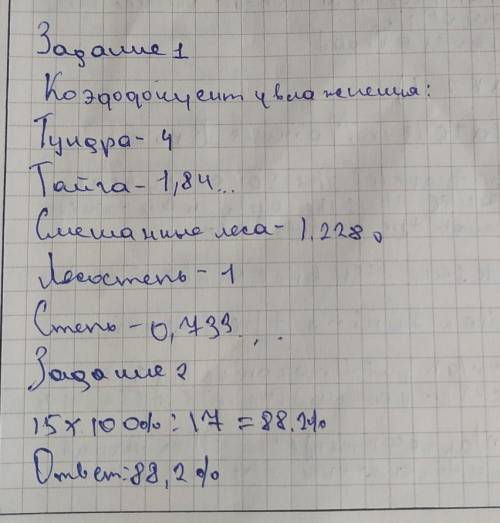 Задание 1
Коэффициент увлажнения:
Тундра - 4
Тайга - 1,84...
Смешанные леса - 1.228.
Лесостепь - 1
Степь - 0,733...
Задание 2
15 × 100% : 17 = 88.2%
Ответ: 88,2%